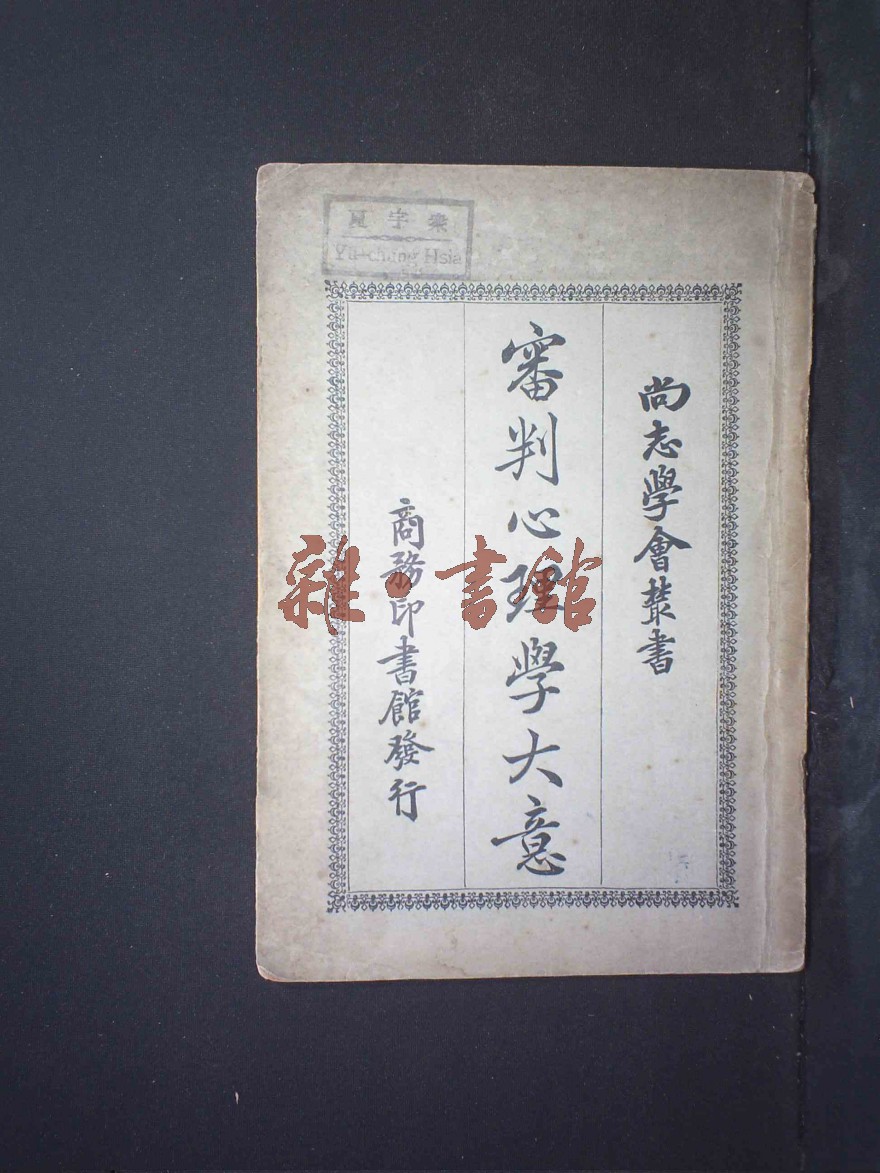 宇衆
Yu-chung Hsia
尚志學會叢書
審判心理學大意
商務印書館發行
雜·書館